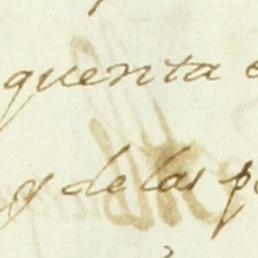 quenta
y de las